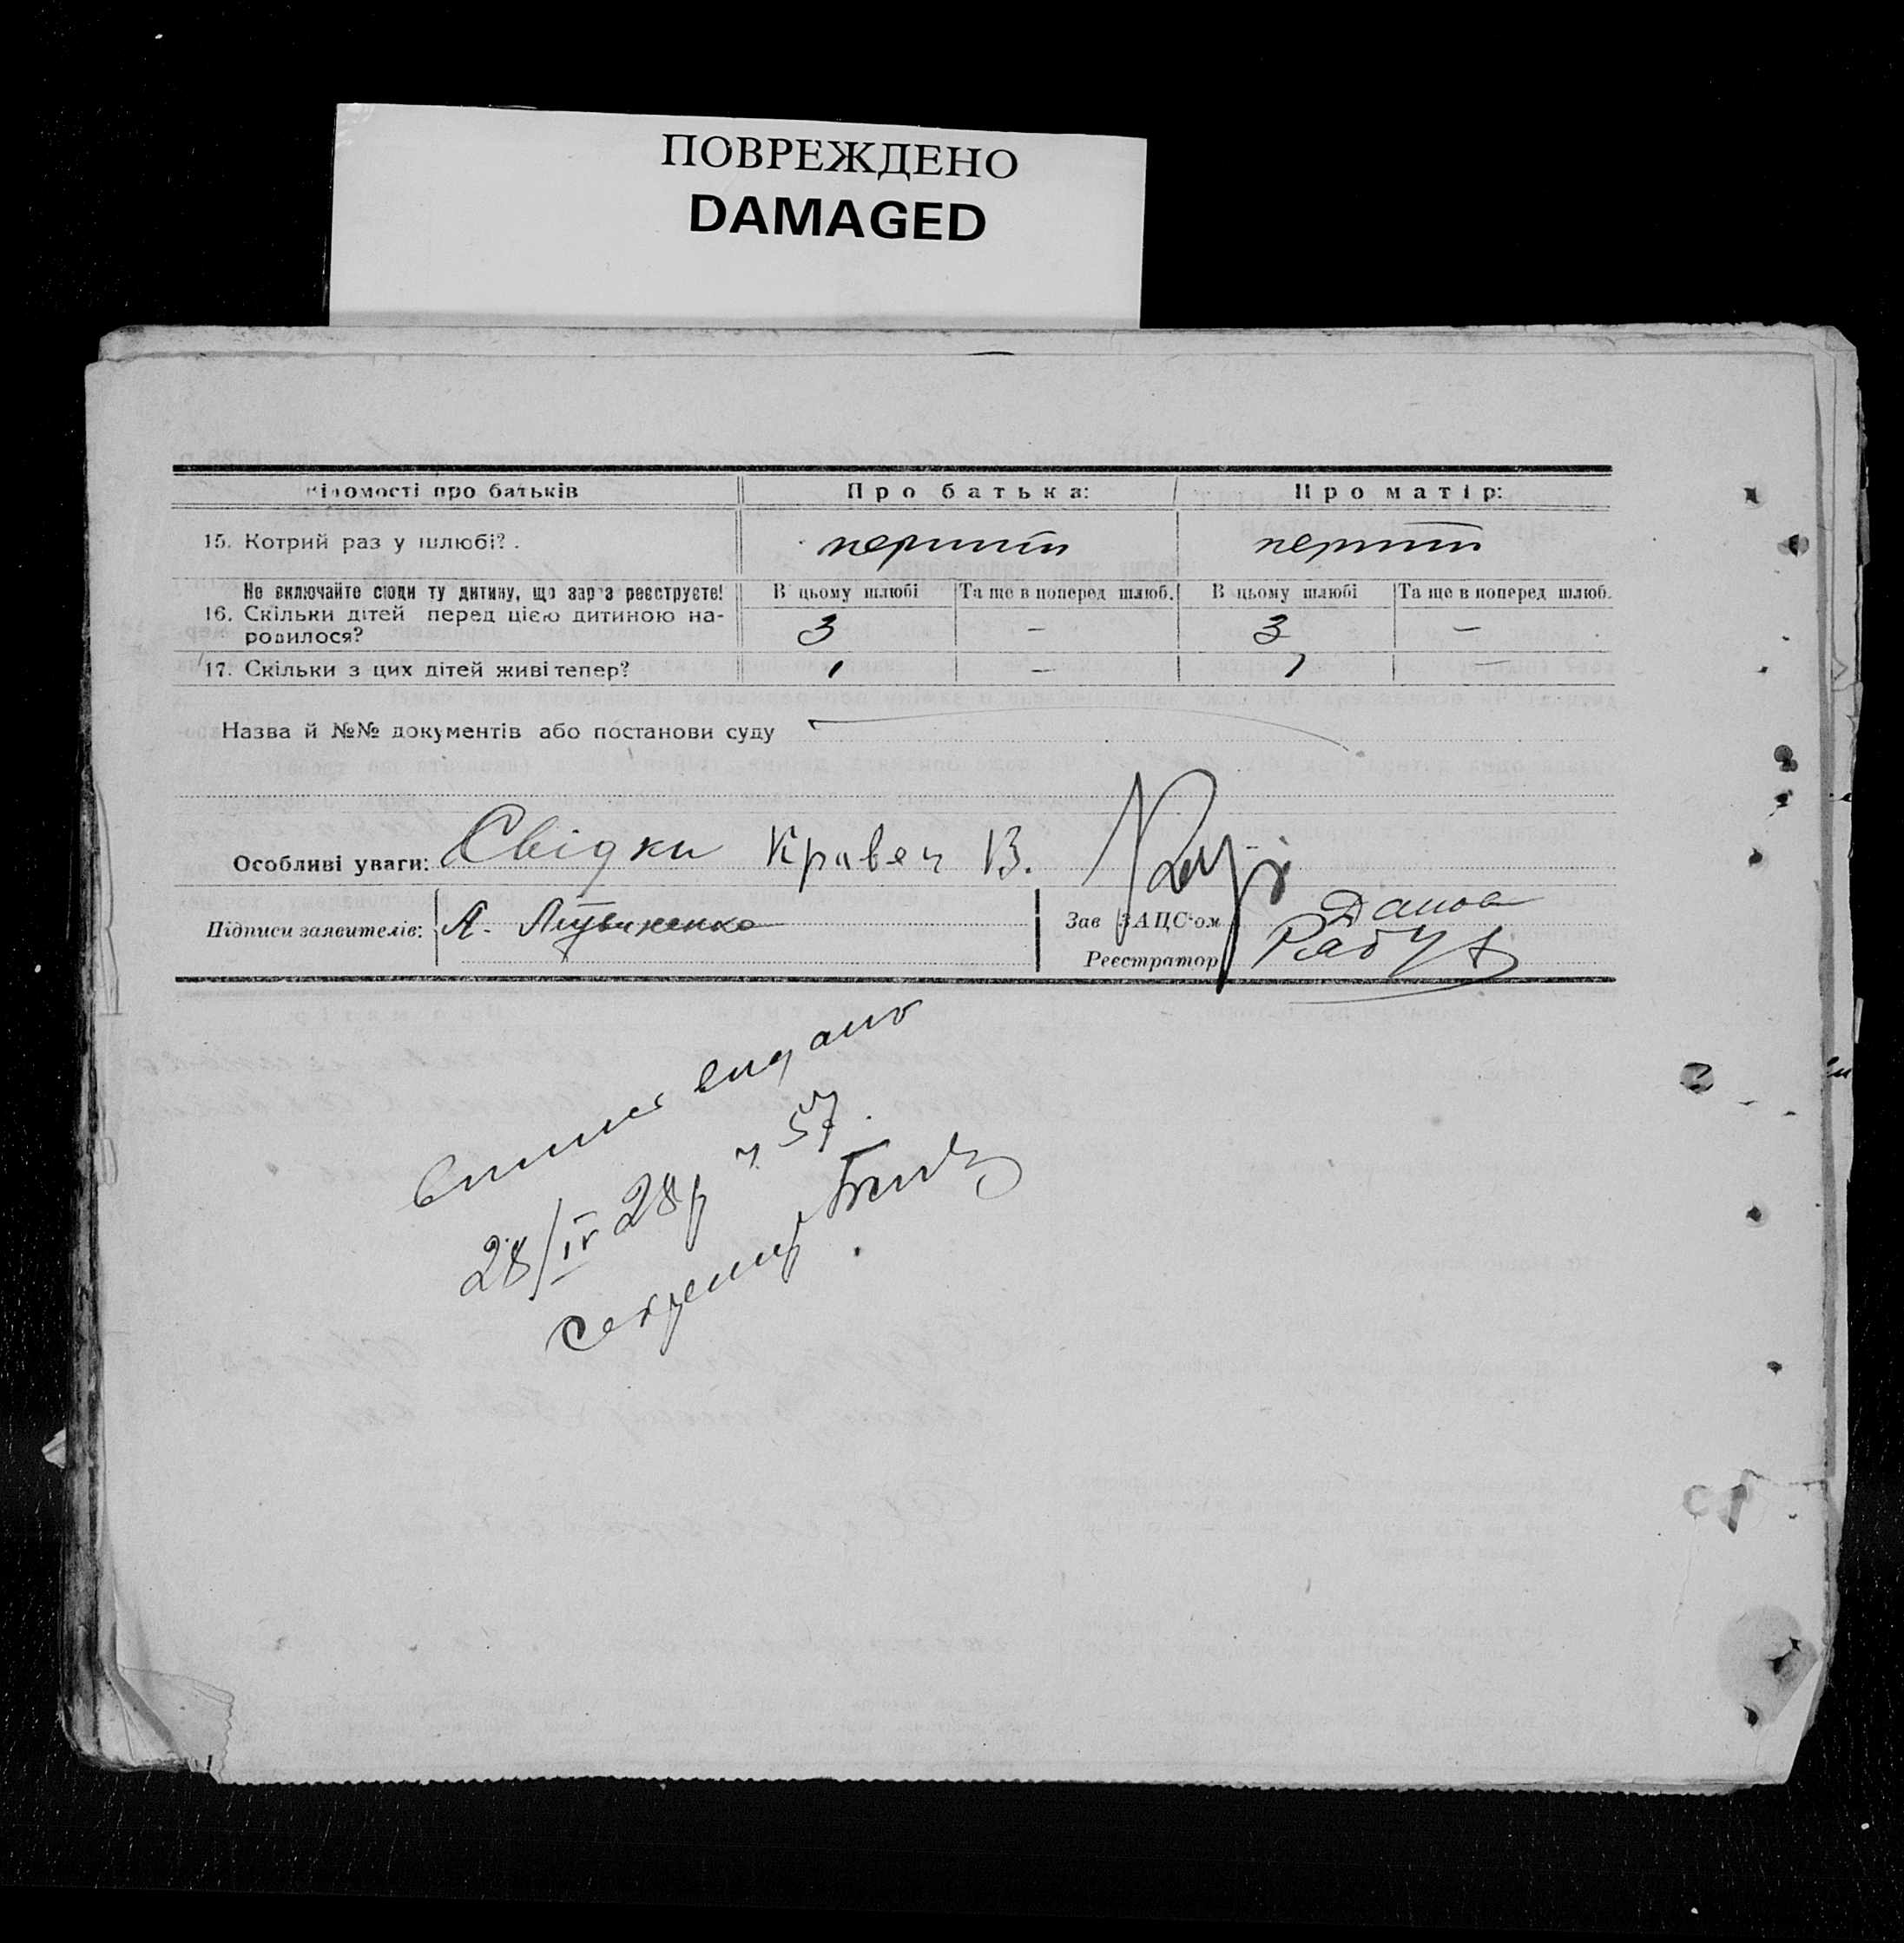 ПОВРЕЖДЕНО
DAMAGED
Відомості про батьків Про батька: Про матір:
15. Котрий раз у шлюбі? . перший перший
Не включайте сюди ту дитину, що зараз реєструєте! В цьому шлюбі Та ще в поперед шлюб. В цьому шлюбі Та ще в поперед шлюб.
16. Скільки дітей перед цією дитиною на-
родилося? 3 — 3 —
17. Скільки з цих дітей живі тепер? 1 — 1 —
Назва й №№ документів або постанови суду
Особливі уваги: Свідки Кравец В.
Підписи заявителів: А. Литвиненко Зав ЗАЦС'ом
Реєстратор
видано
28/IV 28р ч 57.
секретар